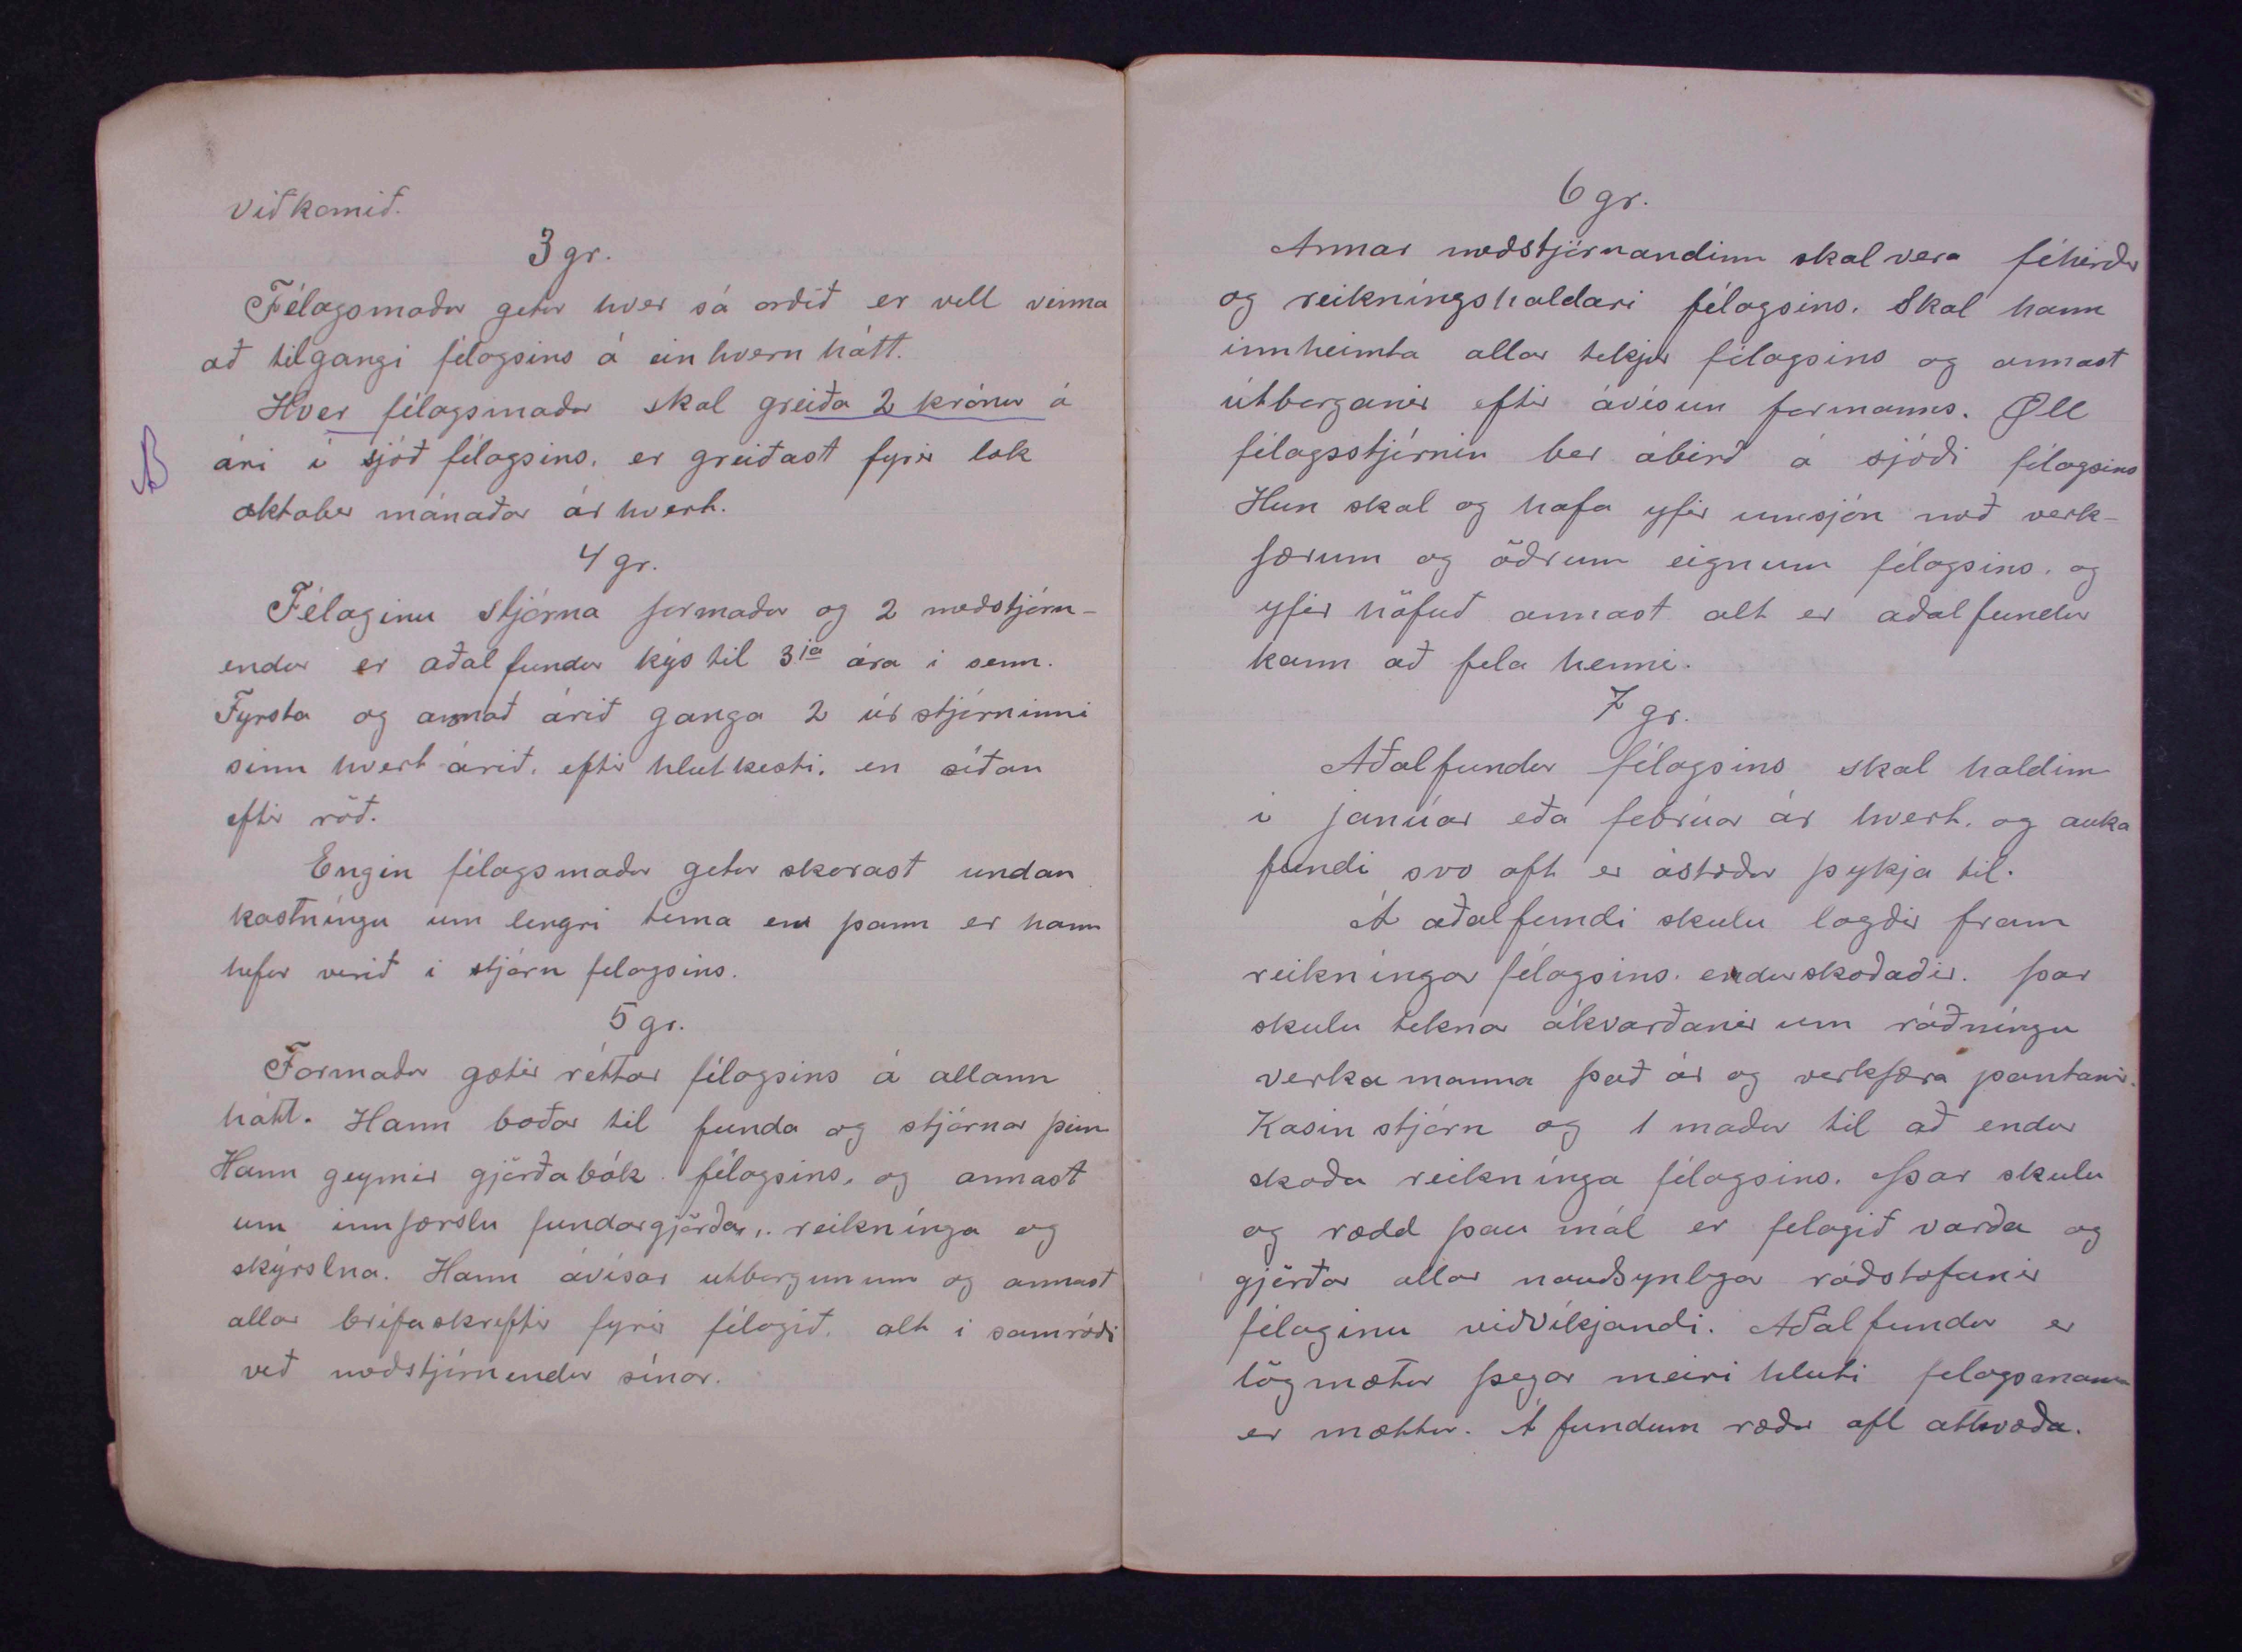 viðkomið.
3 gr.
Félagsmaður getur hver sá orðið er vill vinna
að tilgangi félagsins á einhvern hátt.
Hver félagsmaður skal greiða 2 krónur á
ári í sjóð félagsins, er greiðast fyrir lok
oktober mánaðar ár hvert.
4 gr.
Félaginu stjórna formaður og 2 meðstjórn-
endur er aðalfundur kýs til 3ja ára í senn.
Fyrsta og annað árið ganga 2 úr stjórninni
sinn hvert árið, eftir hlutkesti, en síðan
eftir röð.
Engin félagsmaður getur skorast undan
kostníngu um lengri tíma en þann er hann
hefur verið í stjórn felagsins.
5 gr.
Formaður gætir réttar félagsins á allann
hátt. Hann boðar til funda og stjórnar þeim
Hann geymir gjörðabók félagsins, og annast
um innfærslu fundargjörða, reikninga og
skýrslna. Hann ávísar utborgunum og annast
allar bréfaskriftir fyrir félagið, alt í samráði
við meðstjórnendur sínar.
6 gr.
Annar meðstjórnandinn skal vera féhirðir
og reikníngshaldari félagsins. Skal hann
innheimta allar tekjur félagsins og annast
útborganir eftir ávísun formanns. Öll
félagsstjórnin ber ábirð á sjóði félagsins
Hun skal og hafa yfir umsjón með verk-
færum og öðrum eignum félagsins, og
yfir höfuð annast alt er aðalfundur
kann að fela henni.
7 gr.
Aðalfundur félagsins skal haldinn
í janúar eða febrúar ár hvert, og auka
fundi svo oft er ástæður þykja til.
Á aðalfundi skulu lagðir fram
reikníngar félagsins endurskoðaðir. Þar
skulu teknar ákvarðanir um ráðníngu
verkamanna það ár og verkfæra pantanir.
Kosin stjórn og 1 maður til að endur
skoða reiknínga félagsins. Þar skulu
og rædd þau mál er felagið varða og
gjörðar allar nauðsynlegar ráðstafanir
félaginu viðvíkjandi. Aðalfundur er
lögmætur þegar meiri hluti felagsmanna
er mættur. Á fundum ræður afl atkvæða.